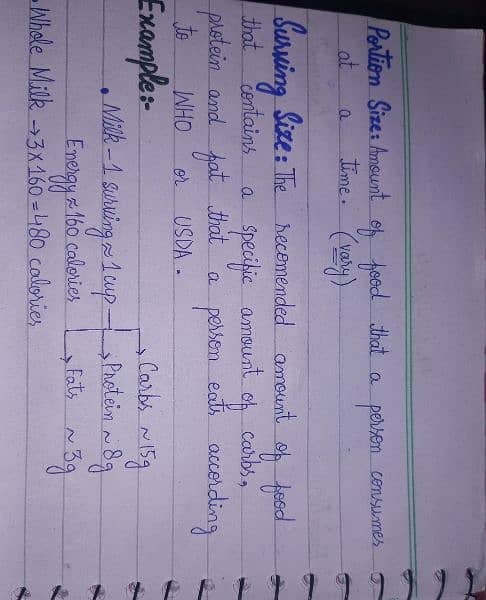 Portion Size: Amount of food that a person consumes
at a time. (vary)
Surving Size: The recomended amount of food
that contains a specific amount of carbs,
protein and fat that a person eats according
to WHO or USDA.
Example:-
• Milk - 1 surving ≈ 1 cup → Carbs ~ 15g
→ Protein ~ 8g
Energy ≈ 160 calories → Fats ~ 3g
• Whole Milk → 3 x 160 = 480 calories